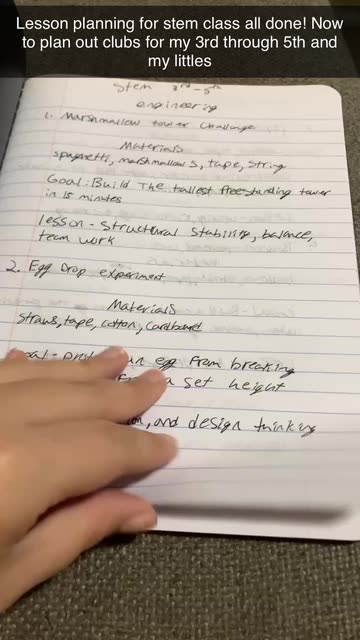 Lesson planning for stem class all done! Now
to plan out clubs for my 3rd through 5th and
my littles
Stem 3rd-5th
engineering
1. Marshmallow tower Challenge
Materials
spaghetti, marshmallows, tape, string
Goal: Build The tallest freestanding tower
in 15 minutes
lesson - Structural Stability, balance,
team work
2. Egg Drop experiment
Materials
Straws, tape, cotton, cardboard
an egg from breaking
a set height
, and design thinking